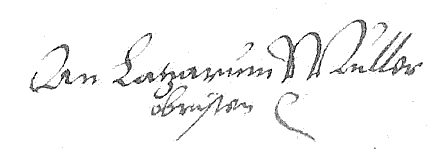 An Lazarum Müller
obristen